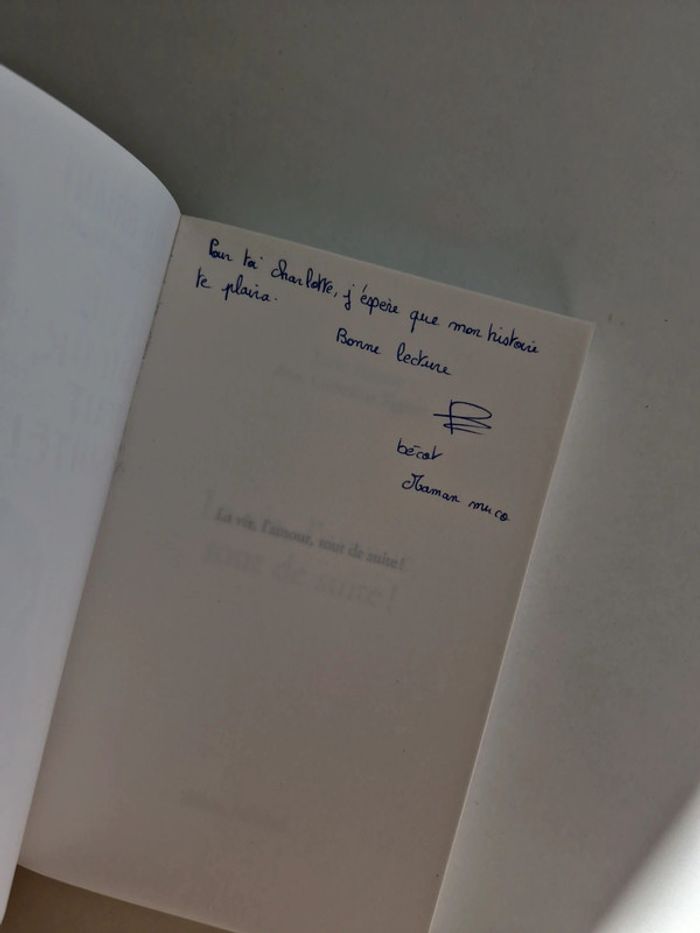 Pour toi Charlotte, j'éspère que mon histoire
te plaira.
Bonne lecture
bécot
Maman muco
La vie, l'amour, tout de suite !
tout de suite !